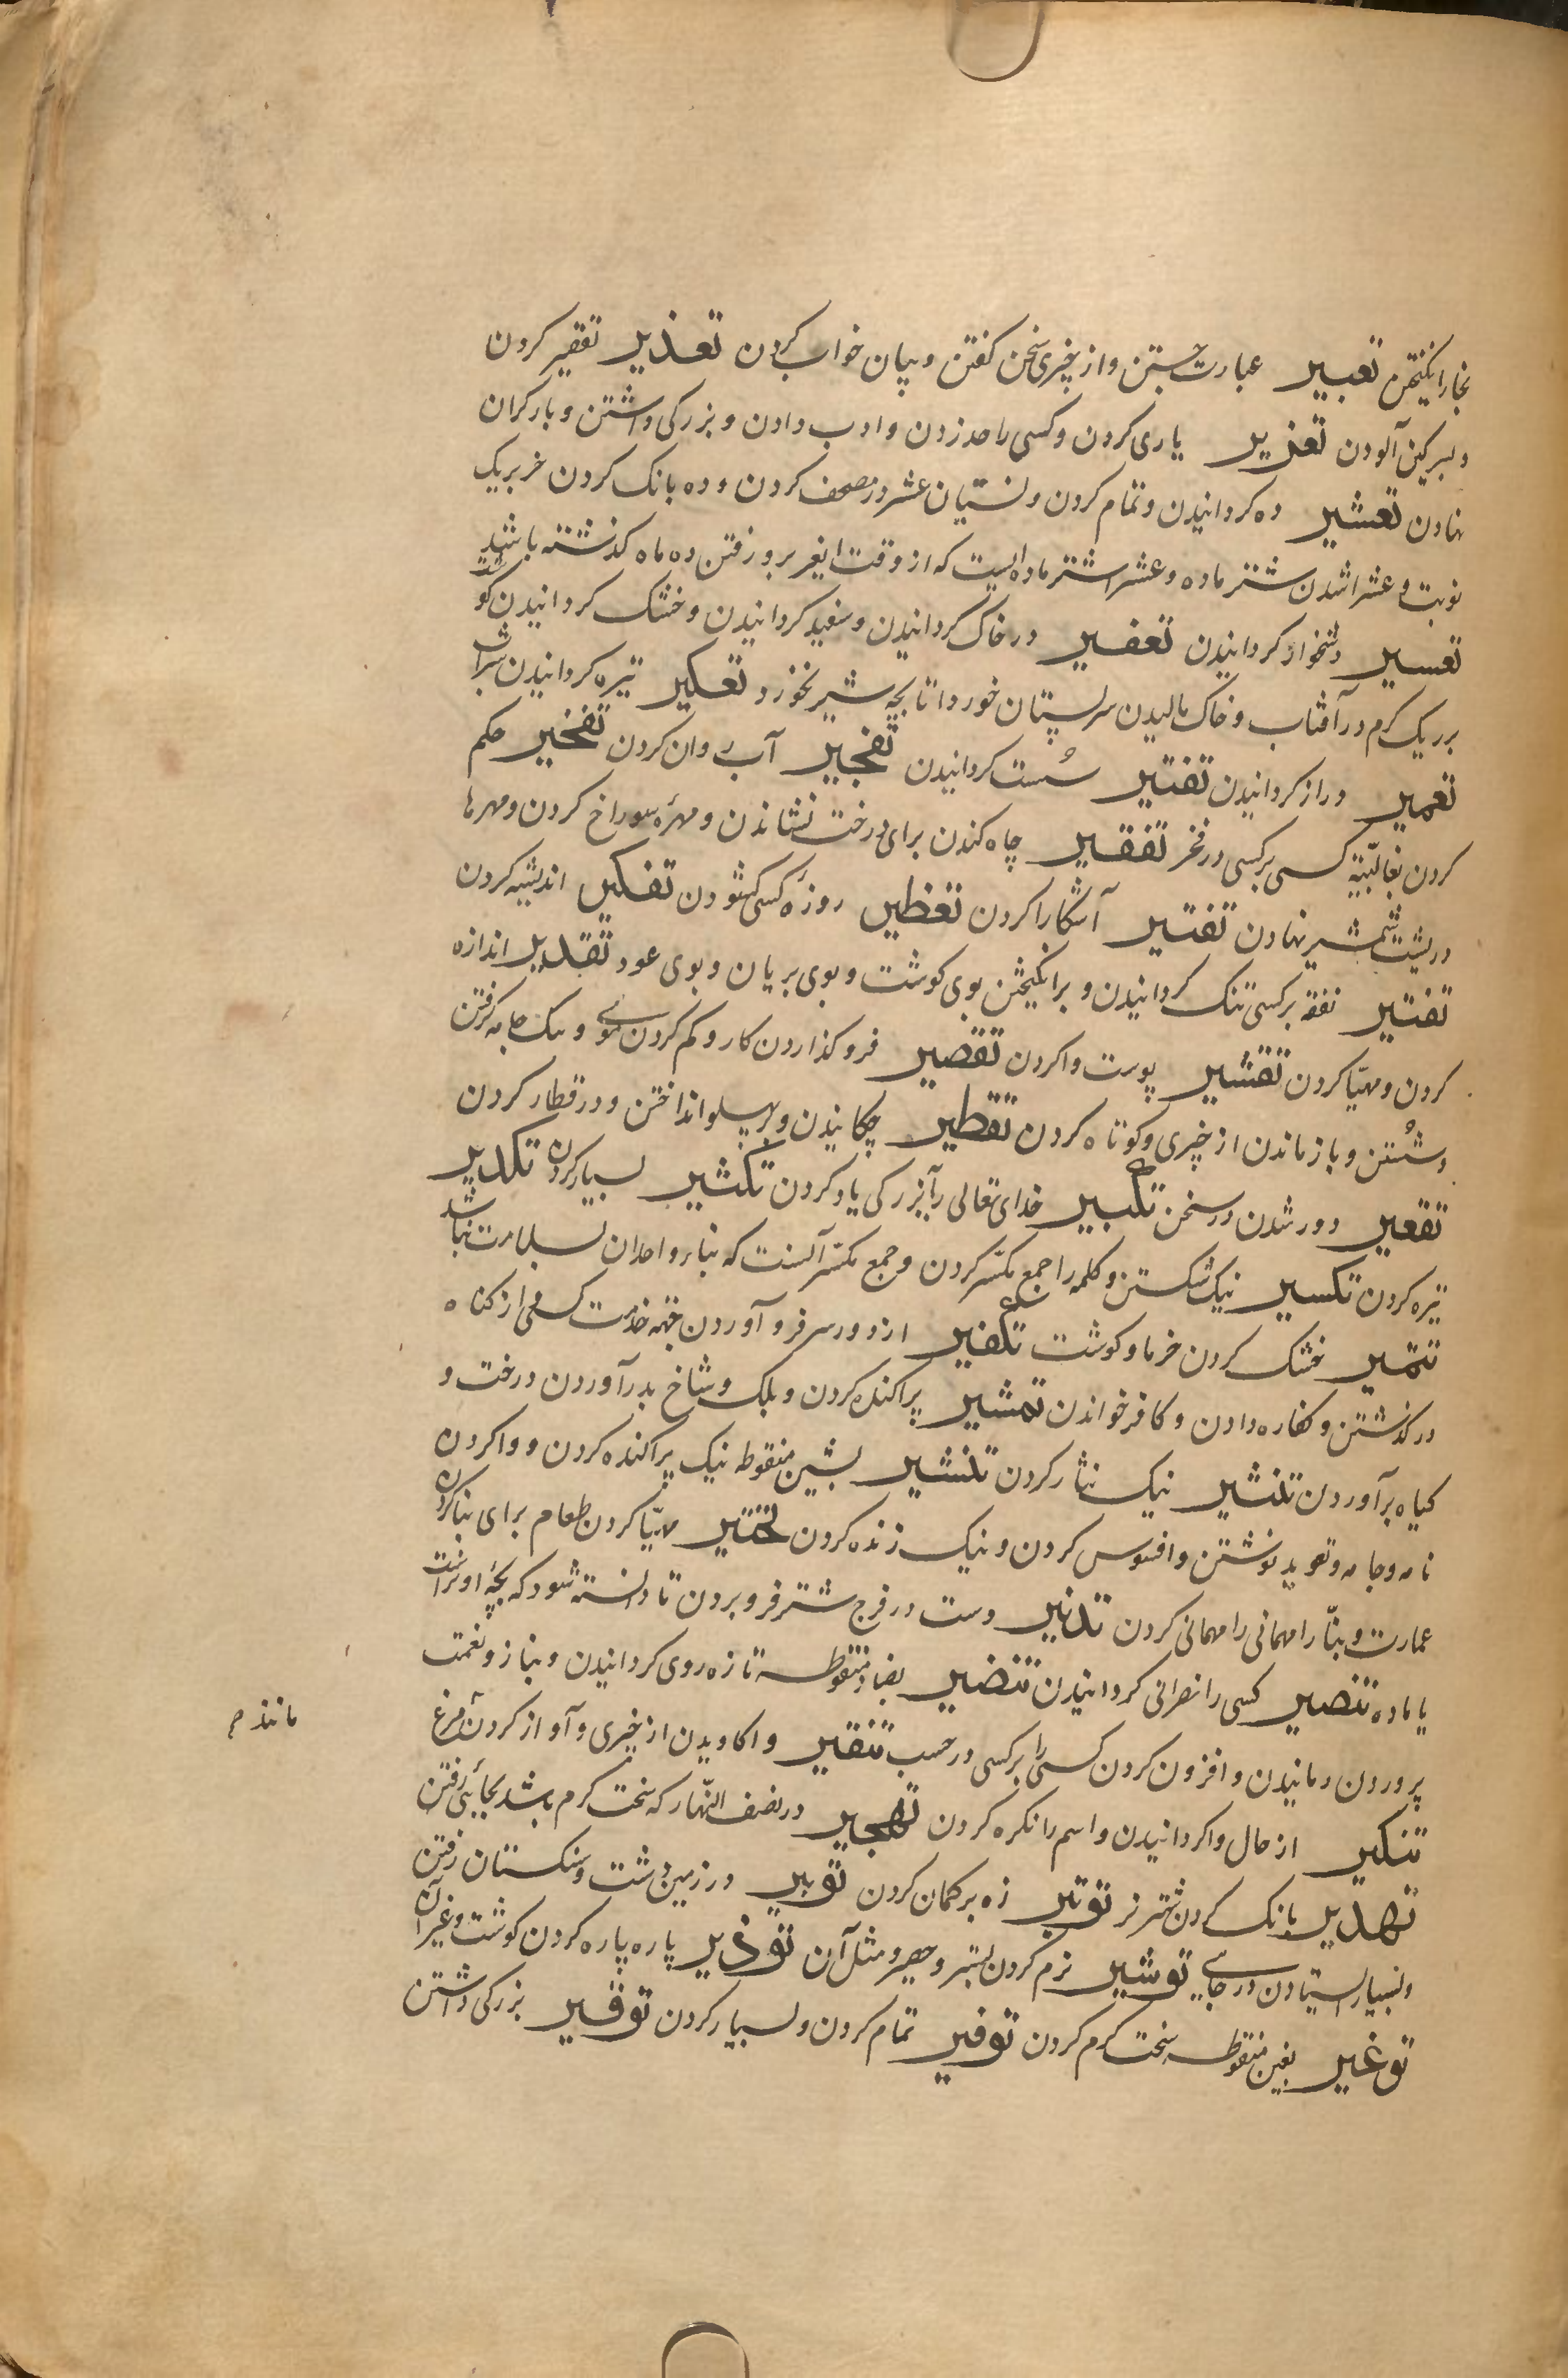 بخار انگیختن تعبیر عبارت جستن و از چیزی سخن کفتن و بیان خواب کردن تعذیر تقصیر کردن
و بسرکین آلودن تعزیر یاری کردن و کسی را حد زدن و ادب دادن و بزرکی داشتن و بار کران
نهادن تعشیر ده کردانیدن و تمام کردن و نشان عشر در مصحف کردن و ده بانک کردن خر بریک
نوبت و عشرا شدن شتر ماده و عشرا شتر ماده ایست که از وقت ابغر برو رفتن ده ماه کذشته باشد
تعسیر دشخوار کردانیدن تعفیر در خاک کردانیدن و سفید کردانیدن و خشک کردانیدن کوشت
بریک کرم در آفتاب و خاک مالیدن سر پستان خود را تا بچه شیر نخورد تعکیر تیره کردانیدن شراب
تعمیر دراز کردانیدن تفتیر سُست کردانیدن تفجیر آب روان کردن تفخیر حکم
کردن بغالبیّة کسی بر کسی در فخر تفقیر چاه کندن برای درخت نشاندن و مهرهٔ سوراخ کردن و مهرها
در پشت شمشیر نهادن تفسیر آشکارا کردن تفطیر روزهٔ کسی کشودن تفکیر اندیشه کردن
تقتیر نفقه بر کسی تنک کردانیدن و برانکیختن بوی کوشت و بوی بریان و بوی عود تقدیر اندازه
کردن و مهیّا کردن تقشیر پوست وا کردن تقصیر فرو کذاردن کار و کم کردن موی و نیک جامه کرفتن
و شستن و باز ماندن از چیزی و کوتاه کردن تقطیر چکانیدن و بر پهلو انداختن و در قطار کردن
تقعیر دور شدن در سخن تکبیر خدای تعالی را ببزرکی یاد کردن تکثیر بسیار کردن تکدیر
تیره کردن تکسیر نیک شکستن و کلمه را جمع مکسّر کردن و جمع مکسّر آنست که بناء واحدان بسلامت نباشد
تتمیر خشک کردن خرما و کوشت تکفیر از دور سر فرو آوردن جهة خدمت کسی از کناه
در کذشتن و کفاره دادن و کافر خواندن تمشیر پراکنده کردن و بلک و شاخ بدر آوردن درخت و
کیاه بر آوردن تنثیر نیک نثار کردن تنشیر بشین منقوطه نیک پراکنده کردن و وا کردن
نامه و جامه و تعوید نوشتن و افسوس کردن و نیک زنده کردن تحتیر مهیّا کردن طعام برای بنا کردن
عمارت و بنّا را مهمانی را مهمانی کردن تذئیر دست در فرج شتر فرو بردن تا دانسته شود که بچهٔ او نراست
یا ماده تنصیر کسی را نصرانی کردانیدن تنضیر بضاد منقوطه تازه روی کردانیدن و بناز و نعمت
پروردن و مانیدن و افزون کردن کسی را بر کسی در حسب تنقیر واکاویدن از چیزی و آواز کردن مرغ
مانند م
تنکیر از حال واکردانیدن و اسم را نکره کردن تهجیر در نصف النّهار که سخت کرم باشد بجائی رفتن
تهدیر بانک کردن شتر نر توتیر زه بر کمان کردن توبیر در زمین درشت و سنکستان رفتن
و بسیار ایستادن در جای توثیر نرم کردن بستر و حصیر و مثل آن توذیر پاره پاره کردن کوشت و غیر آن
توغیر بغین منقوطه سخت کرم کردن توفیر تمام کردن و بسیار کردن توقیر بزرکی داشتن